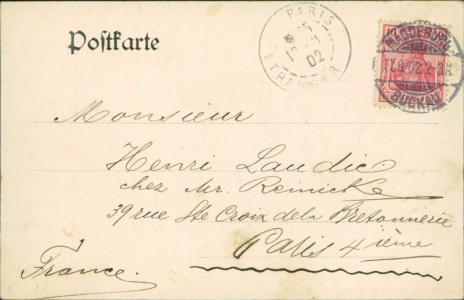 Postkarte
PARIS
02
ETRANGER
MAGDEBURG
BUCKAU
Monsieur
Henri Laudic
chez Mr. Reinicke
39 rue Ste Croix de la Bretonnerie
Paris 4 ième
France.